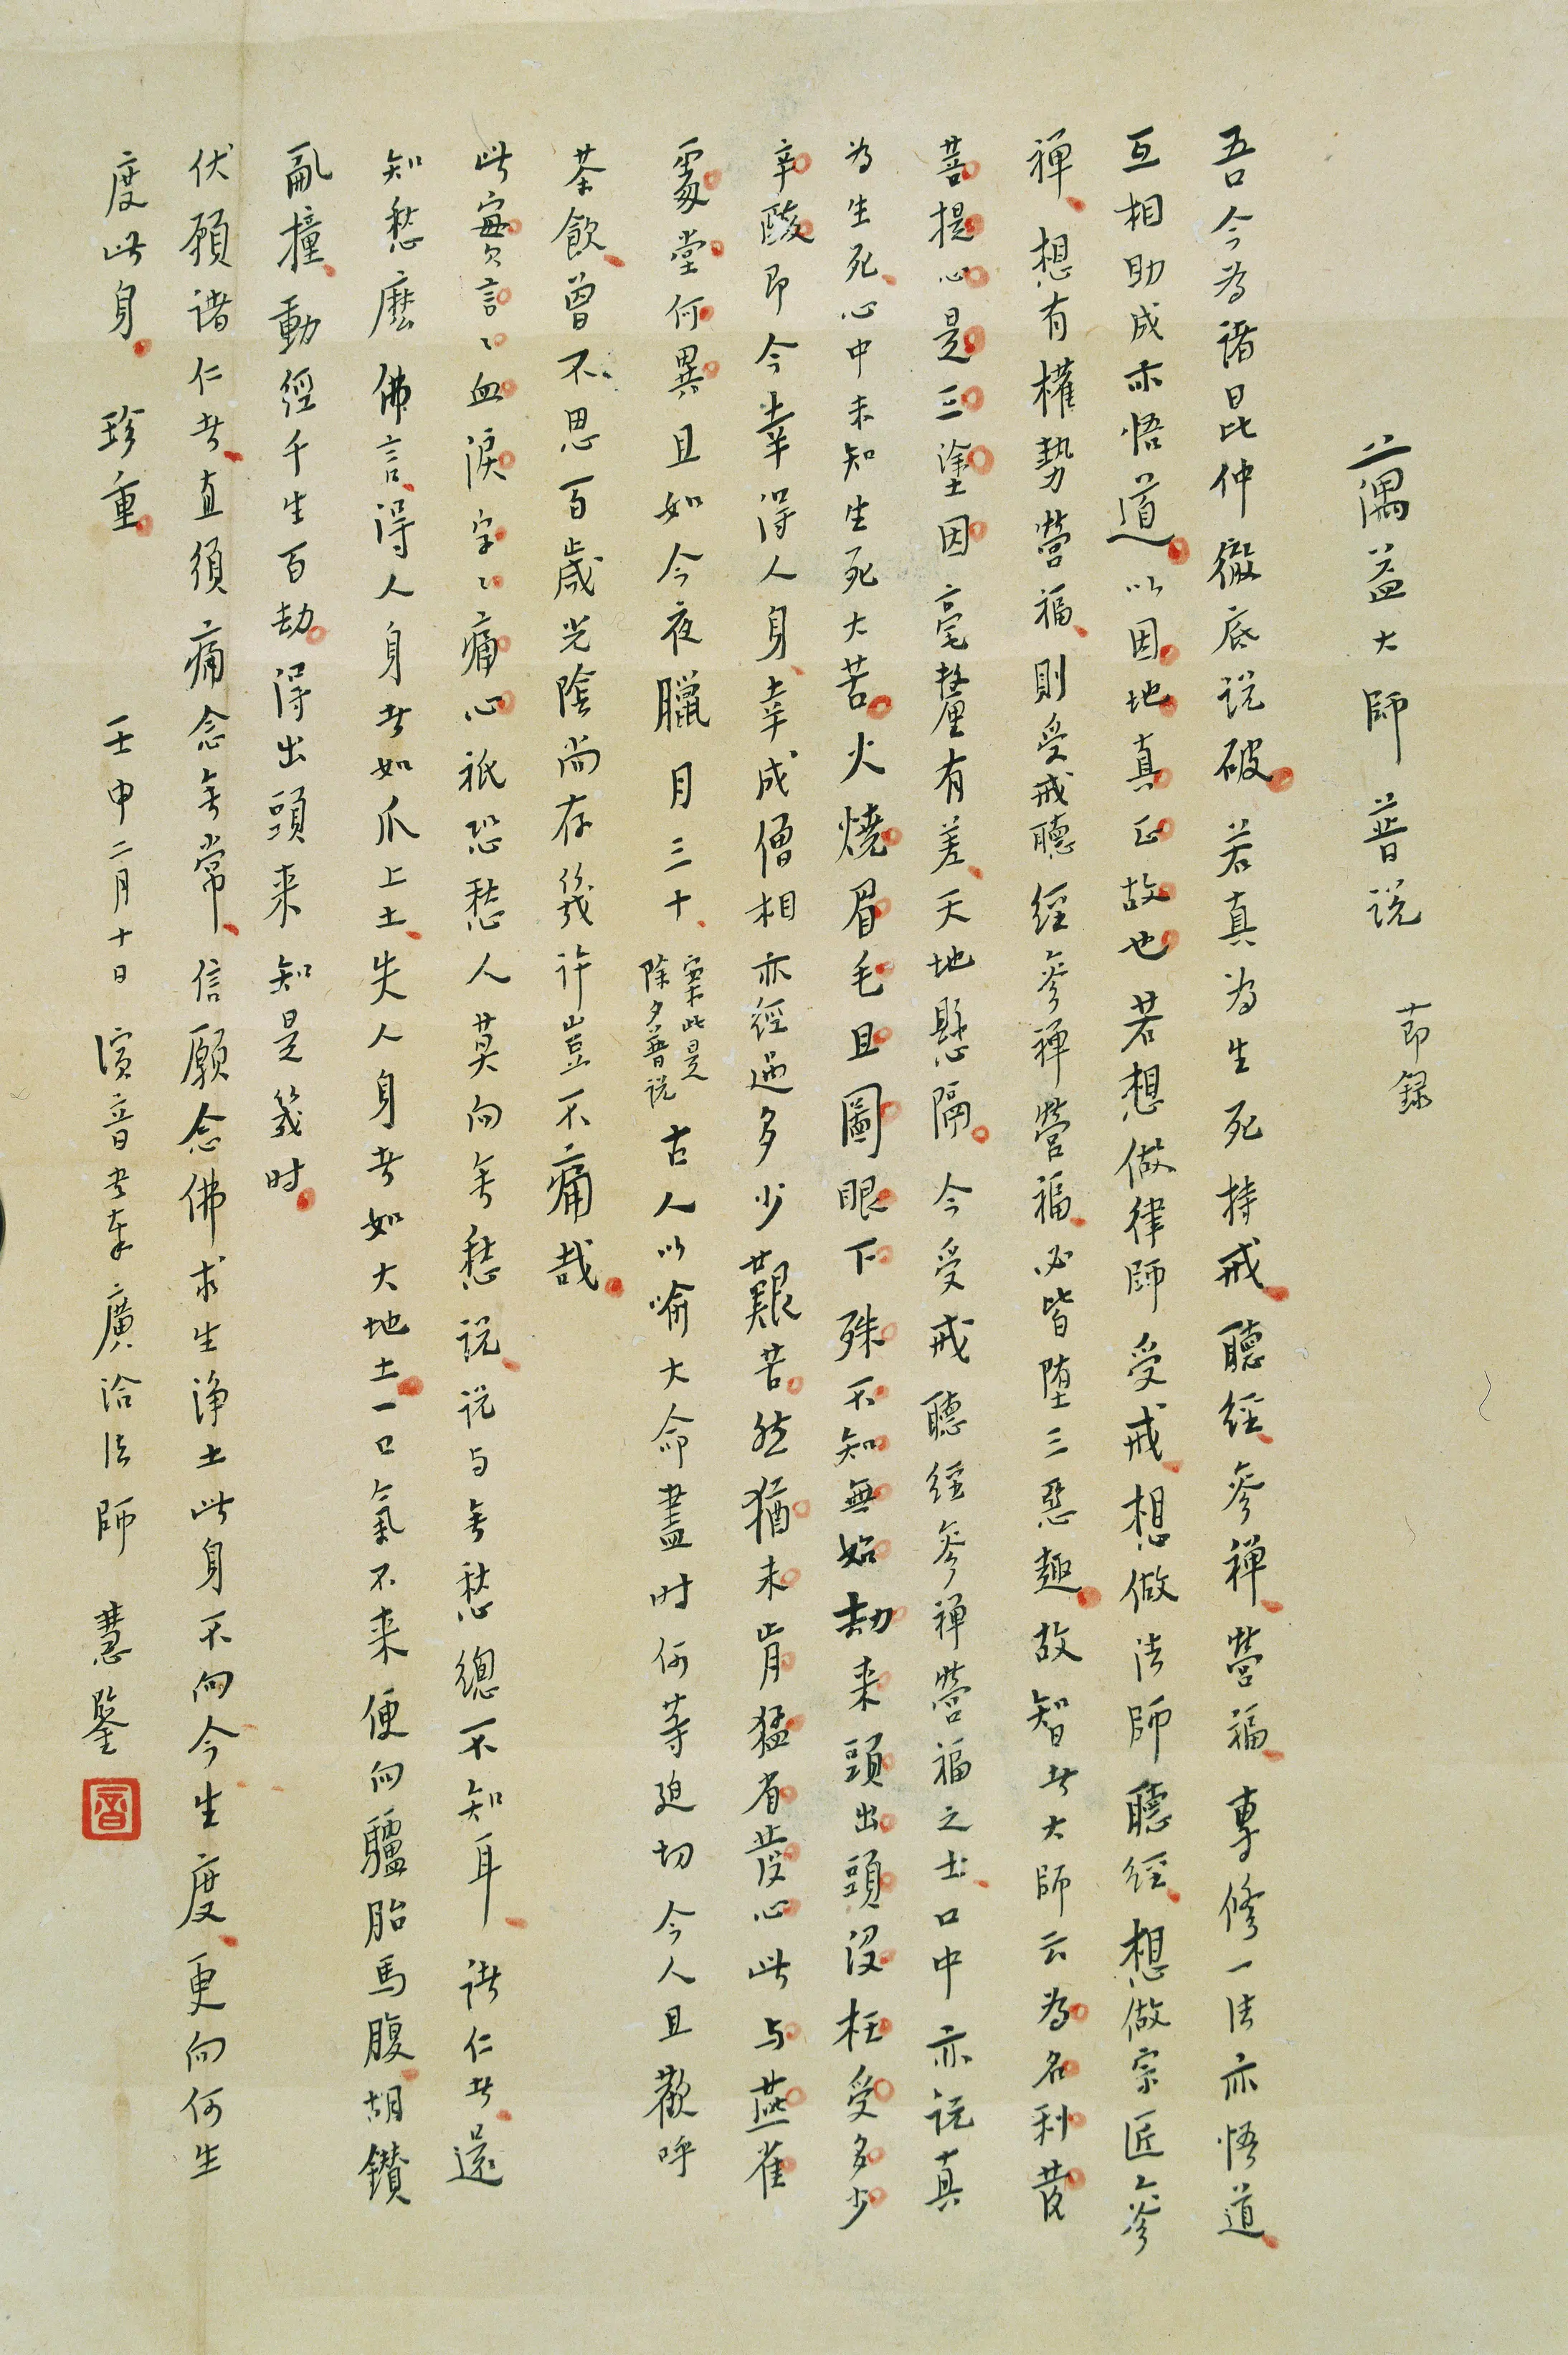 蕅益大師普説 節録
吾今為諸昆仲徹底説破。若真為生死持戒、聽經、參禪、營福、專修一法亦悟道、
互相助成亦悟道。以因地真正故也若想做律師受戒、想做法師聽經、想做宗匠參
禪、想有權勢營福、則受戒聽經參禪營福、必皆墮三惡趣。故智者大師云為名利發
菩提心是三塗因毫釐有差、天地懸隔。今受戒聽經參禪營福之士、口中亦説真
為生死、心中未知生死大苦。火燒眉毛且圖眼下殊不知無始劫来頭出頭沒枉受多少
辛酸即今幸得人身、幸成僧相亦經過多少艱苦。然猶未肯猛省發心此与燕雀
處堂何異且如今夜臘月三十、案此是除夕普説古人以喻大命盡时何等迫切今人且歡呼
茶飲、曾不思百歲光陰尚存幾许豈不痛哉。
此實言〻血淚字〻痛心祇恐愁人莫向無愁説、説与無愁總不知耳、諸仁者、還
知愁麼佛言、得人身者如爪上土、失人身者如大地土。一口氣不来便向驢胎馬腹、胡鑽
亂撞、動經千生百劫。得出頭来知是幾时。
伏願诸仁者、直須痛念無常、信願念佛求生淨土此身不向今生度、更向何生
度此身。 珍重。 壬申二月十日 演音书奉廣洽法師 慧鑒
音